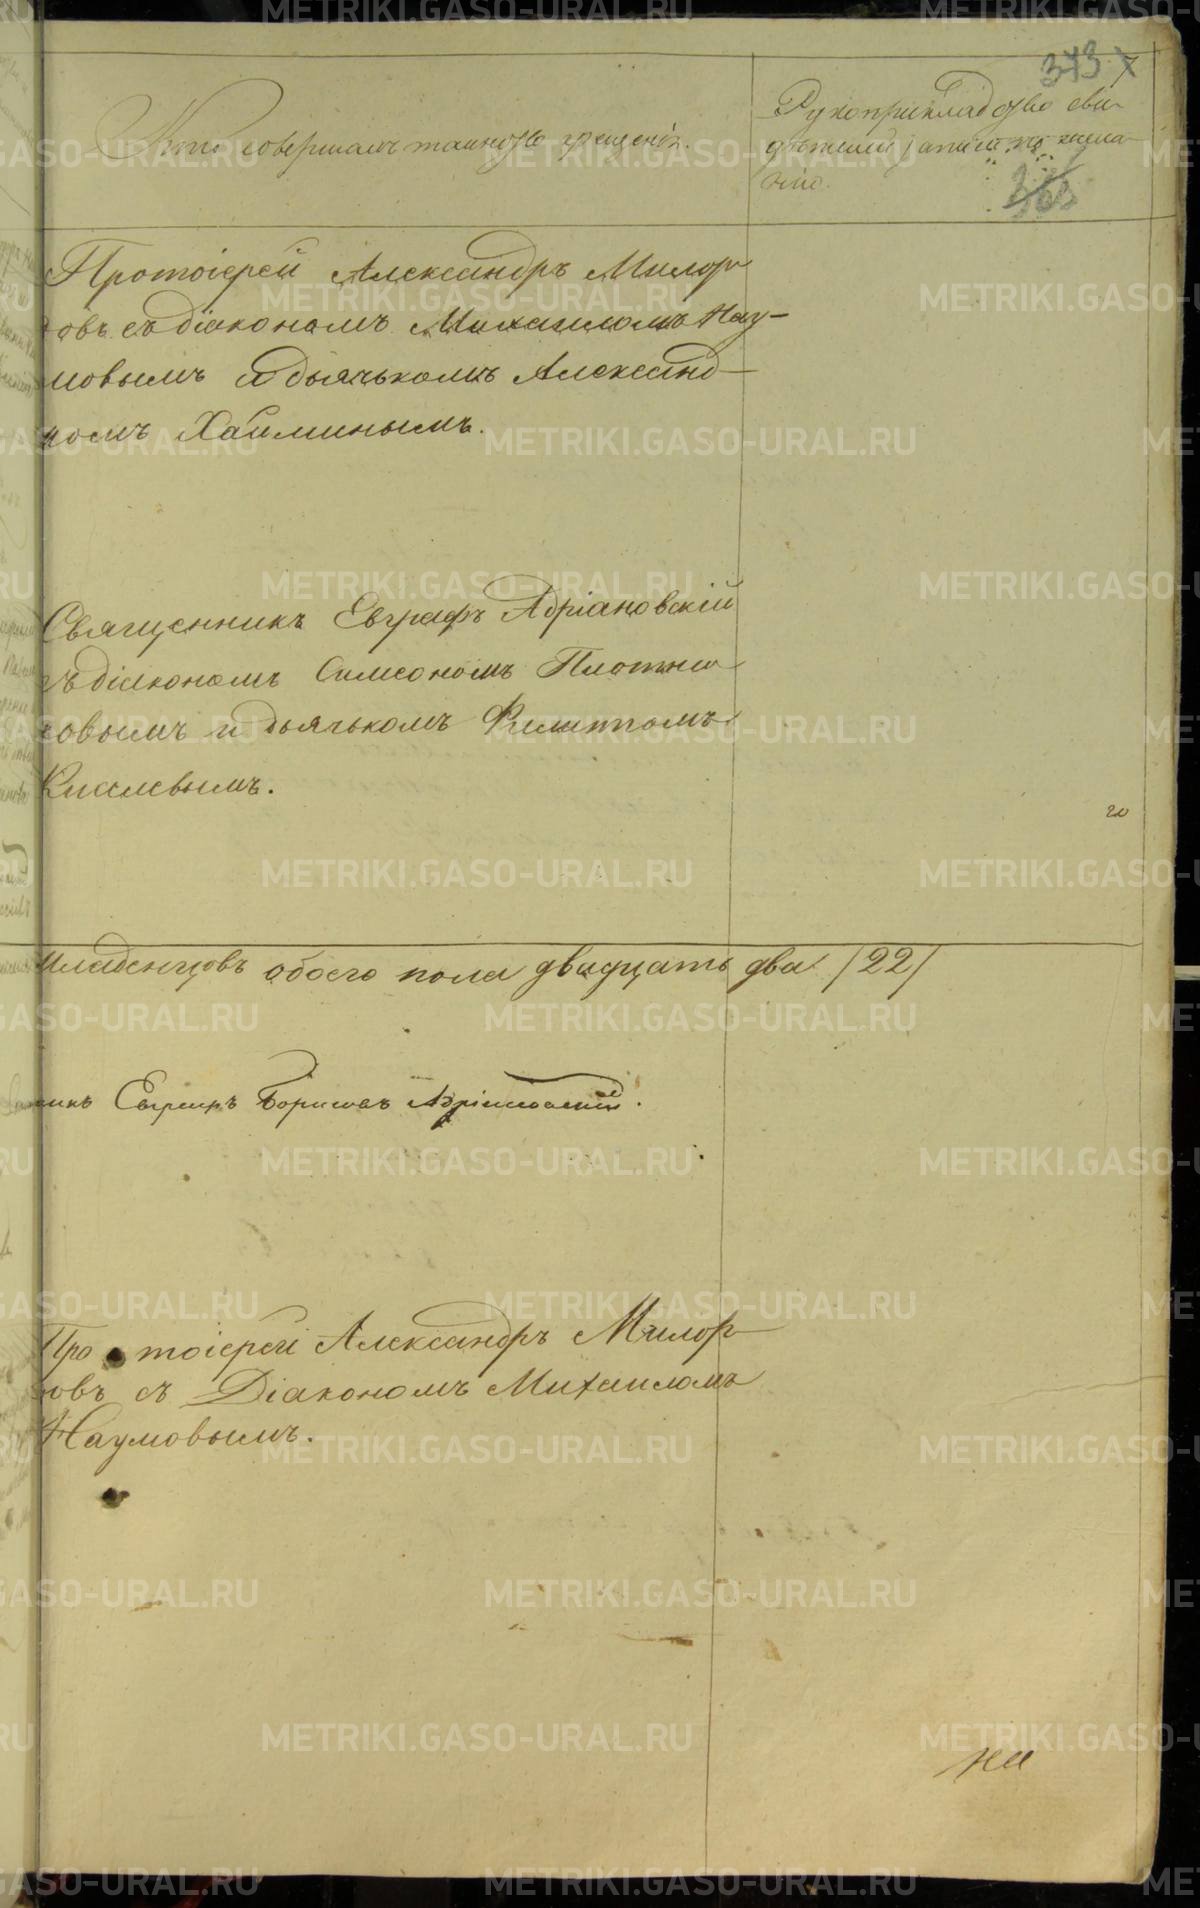 373 7
Кто совершалъ таинство крещенія.
Рукоприкладство сви-
дѣтелей записи по жела-
нію.
363
Протоіерей Александръ Милор
довъ съ діакономъ Михаиломъ Нау-
мовымъ и дьячькомъ Александ-
ромъ Хайминымъ.
Священникъ Евграфъ Адріановскій
съ діакономъ Симеономъ Плотни
ковымъ и дьячькомъ Филиппомъ
Киселевымъ.
го
Младенцовъ обоего пола двадцать два /22/
Евграфъ Борисовъ Адріановскій.
Протоіерей Александръ Милор
довъ съ Діакономъ Михаиломъ
Наумовымъ.
ни
METRIKI.GASO-URAL.RU